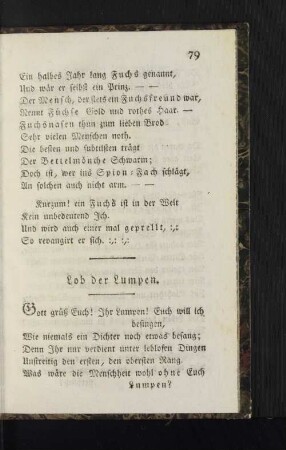 79
Ein halbes Jahr lang Fuchs genannt,
Und wär er selbst ein Prinz. — —
Der Mensch, der stets ein Fuchsfreund war,
Nennt Füchse Gold und rothes Haar. —
Fuchsnasen thun zum lieben Brod
Sehr vielen Menschen noth.
Die besten und subtilsten trägt
Der Bettelmönche Schwarm;
Doch ist, wer ins Spion-Fach schlägt,
An solchen auch nicht arm. — —
Kurzum! ein Fuchs ist in der Welt
Kein unbedeutend Ich.
Und wird auch einer mal geprellt, :,:
So revangirt er sich. :,: :,:
Lob der Lumpen.
Gott grüß Euch! Ihr Lumpen! Euch will ich
besingen,
Wie niemals ein Dichter noch etwas besang;
Denn Ihr nur verdient unter leblosen Dingen
Unstreitig den ersten, den obersten Rang.
Was wäre die Menschheit wohl ohne Euch
Lumpen?